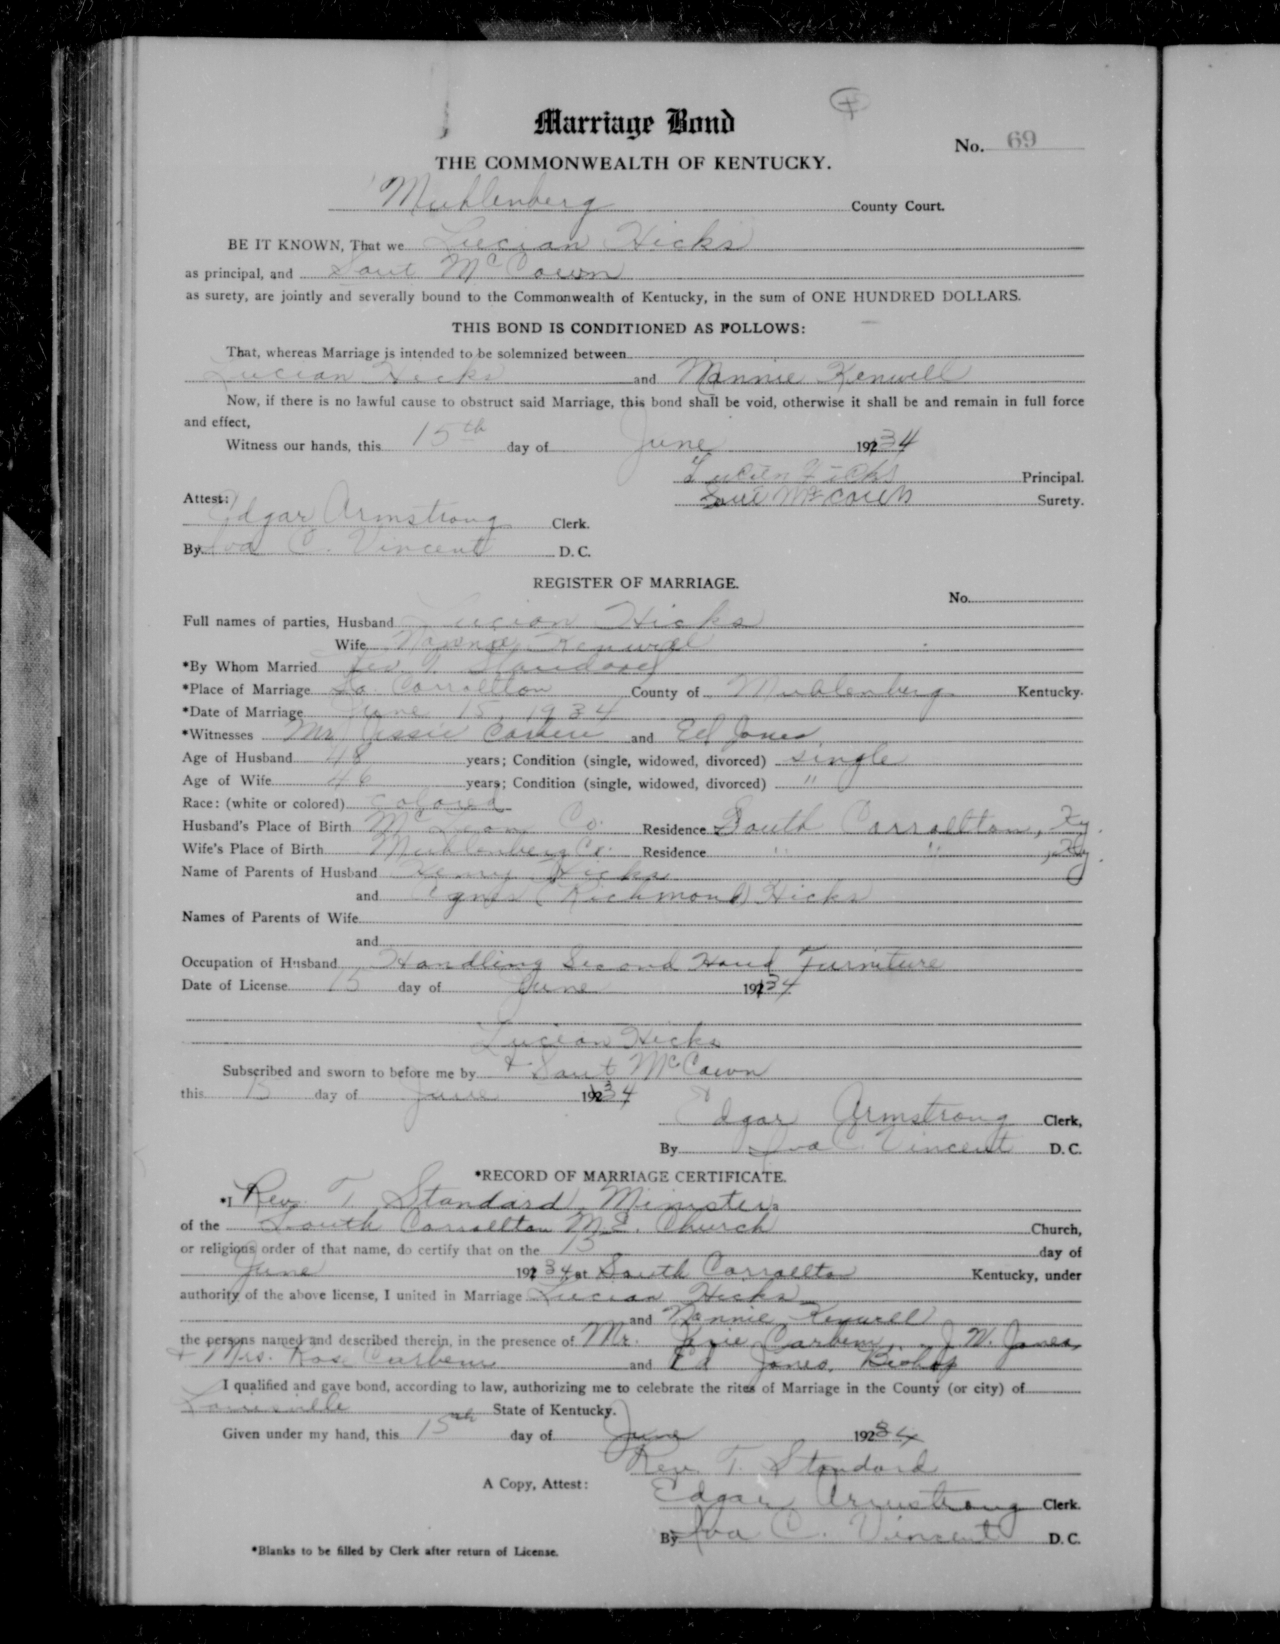 Marriage Bond
No. 69
THE COMMONWEALTH OF KENTUCKY.
Muhlenberg County Court.
BE IT KNOWN, That we Lucian Hicks
as principal, and Saut McCown
as surety, are jointly and severally bound to the Commonwealth of Kentucky, in the sum of ONE HUNDRED DOLLARS.
THIS BOND IS CONDITIONED AS FOLLOWS:
That, whereas Marriage is intended to be solemnized between
Lucian Hicks and Nannie Kenwill
Now, if there is no lawful cause to obstruct said Marriage, this bond shall be void, otherwise it shall be and remain in full force
and effect,
Witness our hands, this 15th day of June 1934
Lucien Hicks Principal.
Attest: McCown Surety.
Edgar Armstrong Clerk.
By Iva C. Vincent D. C.
REGISTER OF MARRIAGE.
No.
Full names of parties, Husband Lucian Hicks
Wife Nannie Kenwill
*By Whom Married Rev. T.
*Place of Marriage So. Carrollton County of Muhlenberg Kentucky.
*Date of Marriage June 15, 1934
*Witnesses Mr Jessie and Ed Jones
Age of Husband 48 years; Condition (single, widowed, divorced) single
Age of Wife 46 years; Condition (single, widowed, divorced) "
Race: (white or colored) colored
Husband's Place of Birth McLean Co. Residence South Carrollton, Ky.
Wife's Place of Birth Muhlenberg Co. Residence " " , Ky.
Name of Parents of Husband Henry Hicks
and Agnes (Richmond) Hicks
Names of Parents of Wife
and
Occupation of Husband Handling Second Hand Furniture
Date of License 15 day of June 1934
Lucian Hicks
Subscribed and sworn to before me by & Saut McCown
this 15 day of June 1934
Edgar Armstrong Clerk,
By Iva C. Vincent D. C.
*RECORD OF MARRIAGE CERTIFICATE.
*I Rev. T. Standard, Minister
of the South Carrollton M.E. Church Church,
or religious order of that name, do certify that on the 15 day of
June 1934 at South Carrollton Kentucky, under
authority of the above license, I united in Marriage Lucian Hicks
and Nannie Kenwill
the persons named and described therein, in the presence of Mr. J. W. Jones,
& Mrs. Rose and Ed Jones, Bishop
I qualified and gave bond, according to law, authorizing me to celebrate the rites of Marriage in the County (or city) of
Louisville State of Kentucky.
Given under my hand, this 15th day of June 1934
Rev. T. Standard
A Copy, Attest:
Edgar Armstrong Clerk.
By Iva C. Vincent D. C.
*Blanks to be filled by Clerk after return of License.